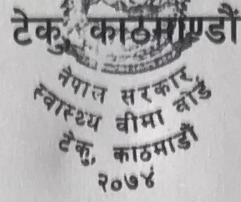 टेकु, काठमाण्डौं
नेपाल सरकार
स्वास्थ्य बीमा बोर्ड
टेकु, काठमाडौं
२०७४